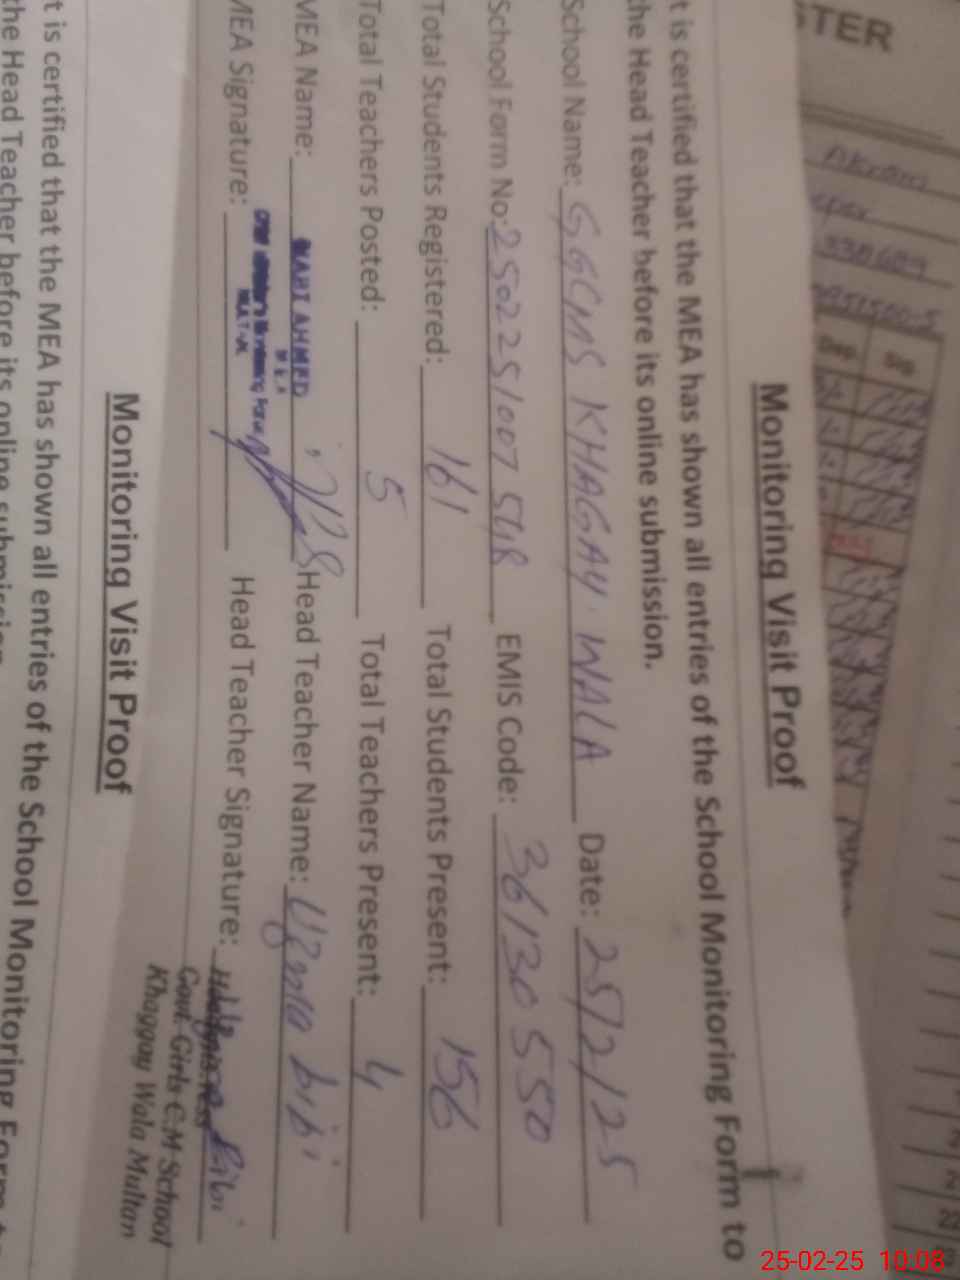 STER
Akram
Monitoring Visit Proof
t is certified that the MEA has shown all entries of the School Monitoring Form to
the Head Teacher before its online submission.
School Name: GGCMS KHAGAY WALA Date: 25/2/25
School Form No: 2502251007548 EMIS Code: 36130550
Total Students Registered: 161 Total Students Present: 156
Total Teachers Posted: 5 Total Teachers Present: 4
MEA Name: AHMED Head Teacher Name: Uzma bibi
MEA Signature: Head Teacher Signature: Bibi
Govt. Girls C.M School
Khaggay Wala Multan
Monitoring Visit Proof
t is certified that the MEA has shown all entries of the School Monitoring Form to
the Head Teacher before its online submission.
25-02-25 10:08